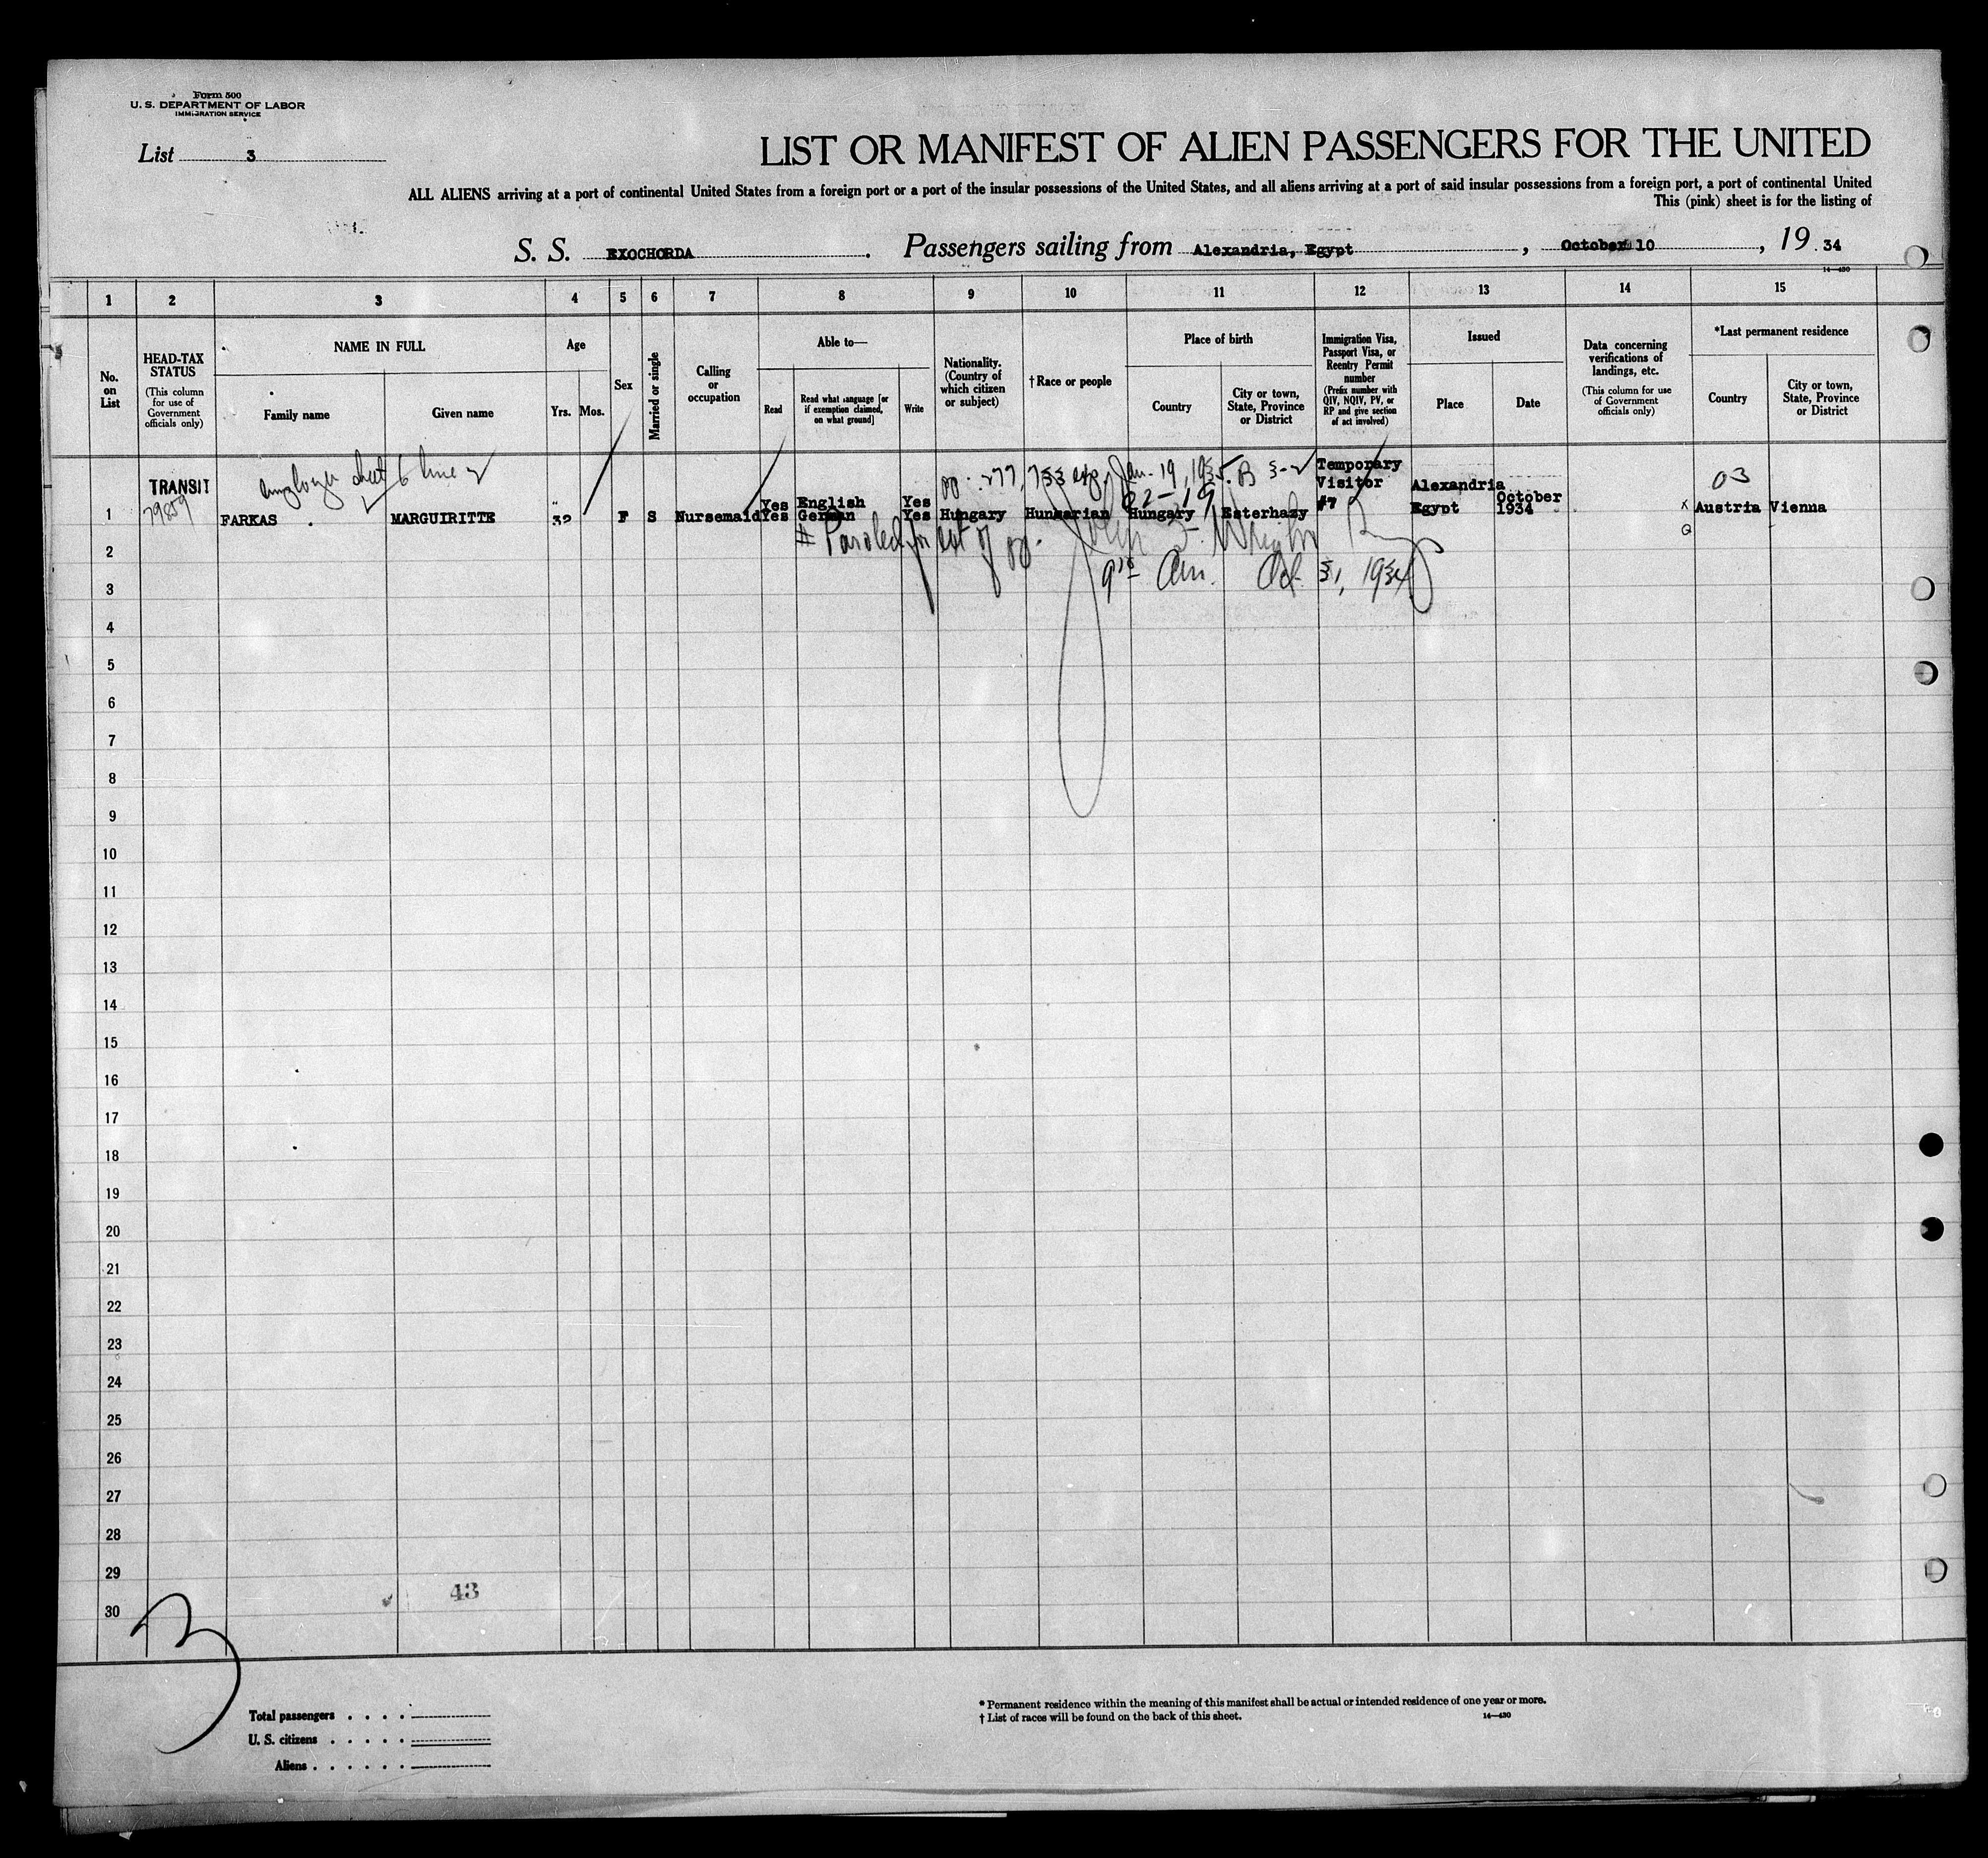 Form 500
U. S. DEPARTMENT OF LABOR
IMMIGRATION SERVICE
List 3
LIST OR MANIFEST OF ALIEN PASSENGERS FOR THE UNITED
ALL ALIENS arriving at a port of continental United States from a foreign port or a port of the insular possessions of the United States, and all aliens arriving at a port of said insular possessions from a foreign port, a port of continental United
This (pink) sheet is for the listing of
S. S. EXOCHORDA . Passengers sailing from Alexandria, Egypt , October 10 , 19 34
14—430
1 2 3 4 5 6 7 8 9 10 11 12 13 14 15
No. on List
HEAD-TAX STATUS
(This column for use of Government officials only)
NAME IN FULL
Family name
Given name
Age
Yrs. Mos.
Sex
Married or single
Calling or occupation
Able to—
Read
Read what language [or if exemption claimed, on what ground]
Write
Nationality. (Country of which citizen or subject)
†Race or people
Place of birth
Country
City or town, State, Province or District
Immigration Visa, Passport Visa, or Reentry Permit number
(Prefix number with QIV, NQIV, PV, or RP and give section of act involved)
Issued
Place
Date
Data concerning verifications of landings, etc.
(This column for use of Government officials only)
*Last permanent residence
Country
City or town, State, Province or District
employer sheet 6 line 2
Jan. 19, 1935. B
Temporary
03
TRANSIT
Visitor
Alexandria
79859
Yes English Yes
02-19
October
1 FARKAS MARGUIRITTE 32 F S Nursemaid Yes German Yes Hungary Hungarian Hungary Esterhazy #7 Egypt 1934 x Austria Vienna
2 # Paroled for ext of
3 Oct. 31, 1934
4
5
6
7
8
9
10
11
12
13
14
15
16
17
18
19
20
21
22
23
24
25
26
27
28
29
43
30
3
Total passengers
U. S. citizens
Aliens
* Permanent residence within the meaning of this manifest shall be actual or intended residence of one year or more.
† List of races will be found on the back of this sheet. 14—430